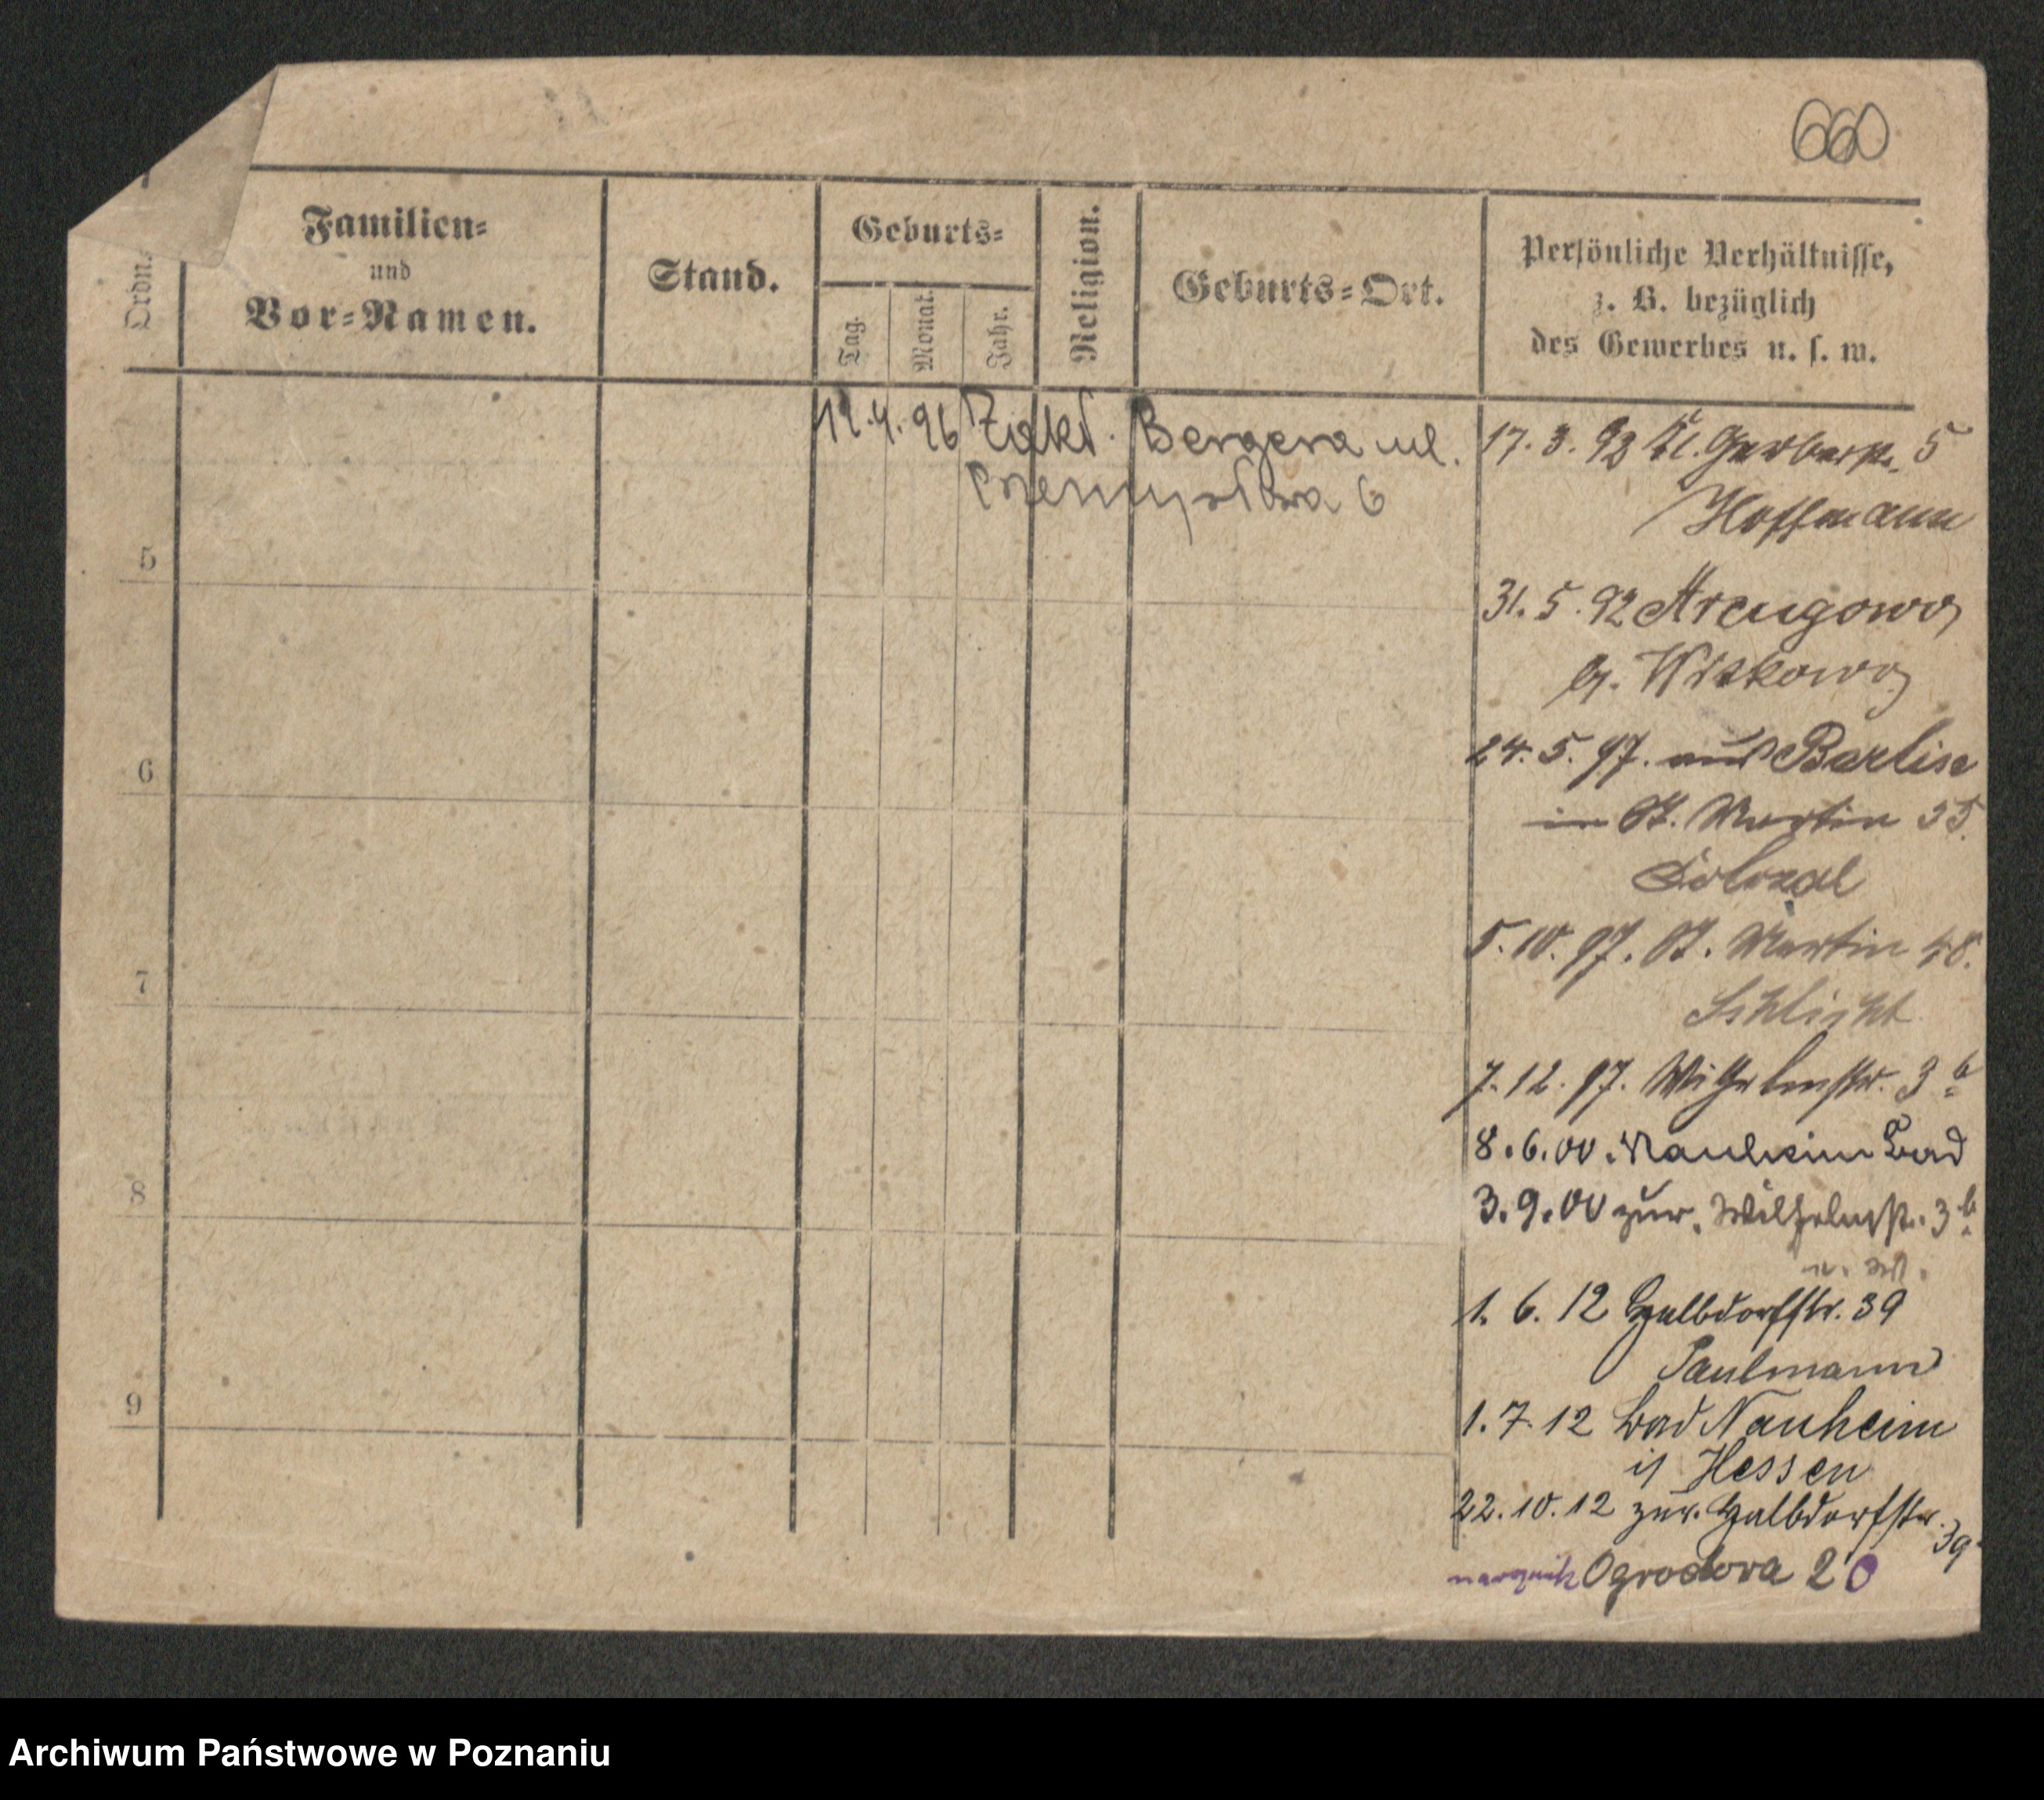 660
Ordn.
Familien-
und
Vor-Namen.
Stand.
Geburts-
Tag.
Monat.
Jahr.
Religion.
Geburts-Ort.
Persönliche Verhältnisse,
z. B. bezüglich
des Gewerbes u. s. w.
Zakł. Bergera ul.
Przemysłowa 6
17. 3. 92 Kl. Gerberstr. 5
Hoffmann
31. 5. 92
24. 5. 97. aus Berlin
in St. Martin
5. 10. 97. St. Martin 48.
Schlicht
7. 12. 97. Wilhelmstr. 3 b
8. 6. 00. Nauheim Bad
3. 9. 00 zur. Wilhelmstr. 3 b
1. 6. 12 Halbdorfstr. 39
Paulmann
1. 7. 12 Bad Nauheim
i/ Hessen
22. 10. 12 zur. Halbdorfstr. 39.
narożnik Ogrodowa 20
5
6
7
8
9
Archiwum Państwowe w Poznaniu